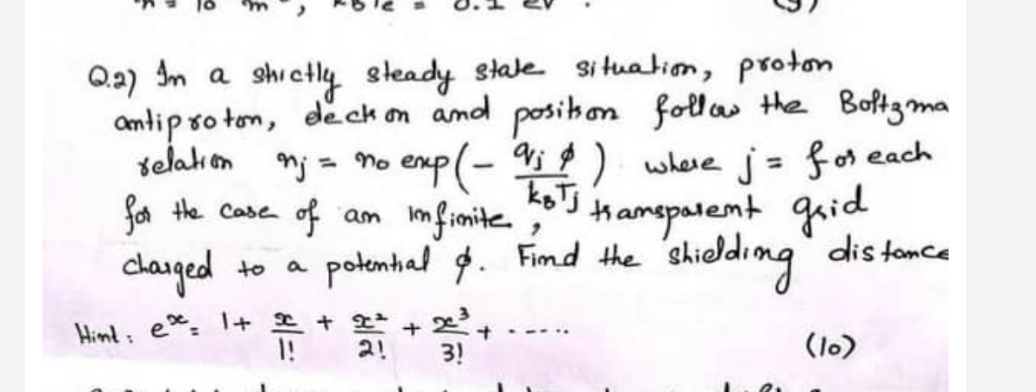 Q.2) In a strictly steady state situation, proton
antiproton, electron and positron follow the Boltzma
relation nj = no exp(- qj φ / kBTj) where j = for each
for the case of an infinite, transparent grid
charged to a potential φ. Find the shielding distance
Hint: e^x = 1 + x/1! + x²/2! + x³/3! + -----
(10)